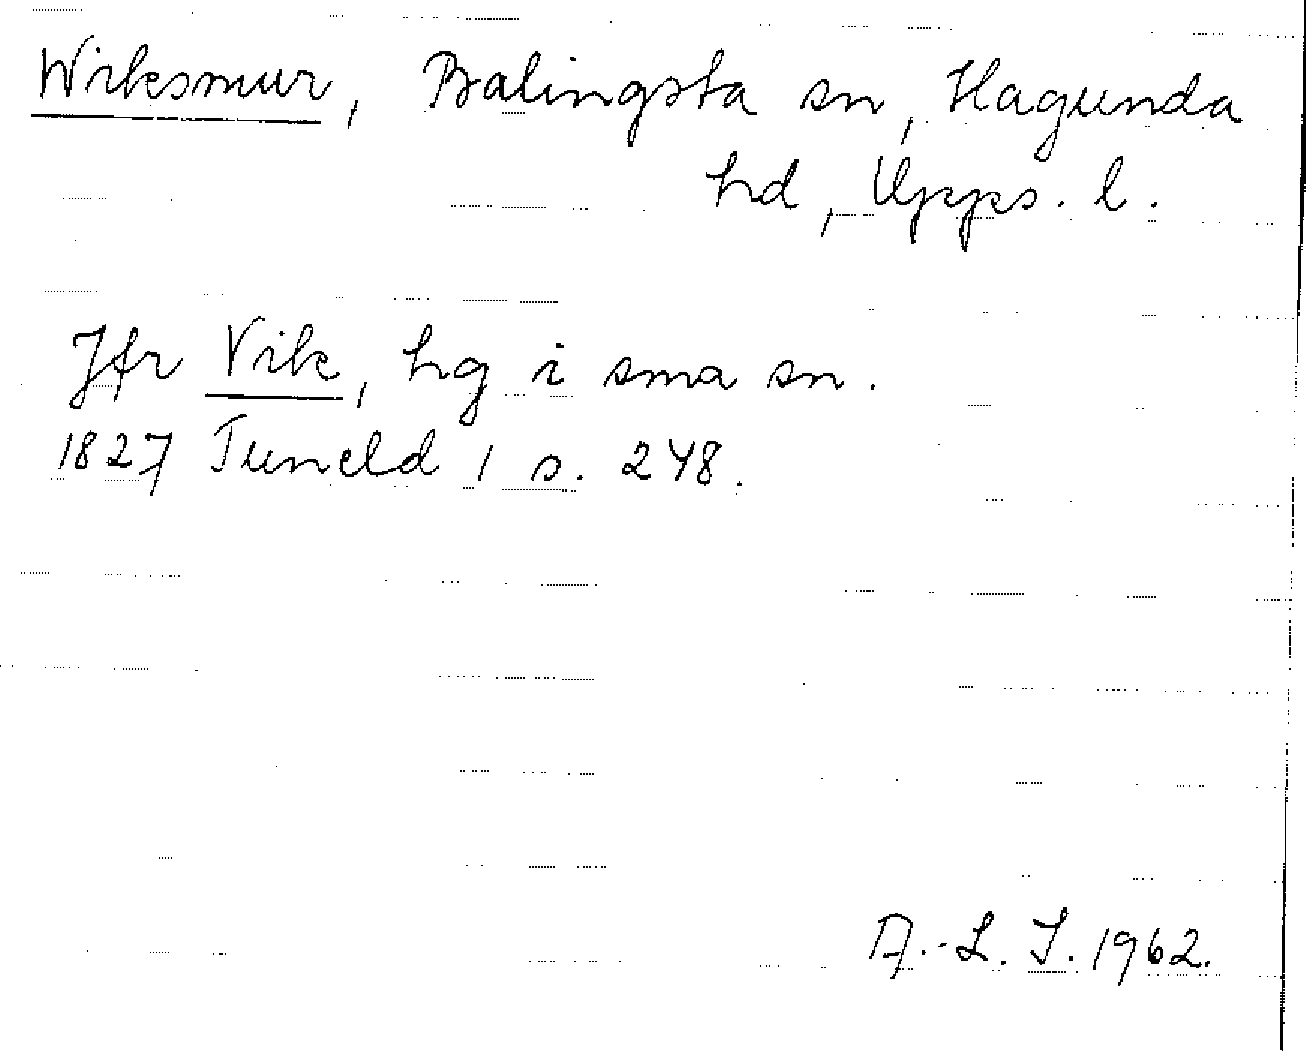 Wiksmur, Balingsta sn, Hagunda
hd, Upps. l.
Jfr Vik, hg i sma sn.
1827 Tuneld 1 s. 248.
A.-L. J. 1962.